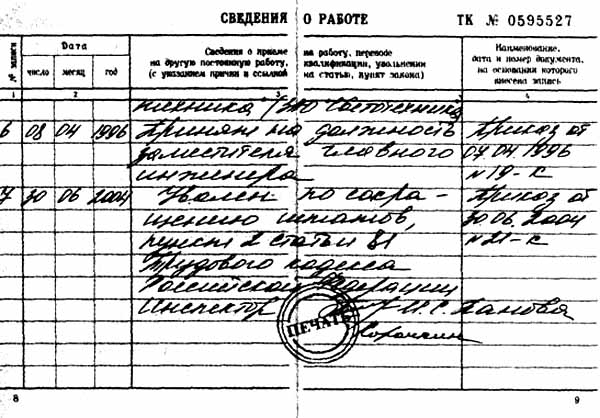 СВЕДЕНИЯ О РАБОТЕ ТК № 0595527
№ записи
Дата
Сведения о приеме на работу, переводе
на другую постоянную работу, квалификации, увольнении
(с указанием причин и ссылкой на статью, пункт закона)
Наименование,
дата и номер документа,
на основании которого
внесена запись
число месяц год
1 2 3 4
техника
6 08 04 1996 Принят на должность Приказ от
заместителя главного 07.04.1996
инженера №19-к
7 30 06 2004 Уволен по сокра- Приказ от
щению штатов, 30.06.2004
пункт 2 статьи 81 №21-к
Трудового кодекса
Российской Федерации
Инспектор И.С. Панова
ПЕЧАТЬ
Сорочкин
8 9